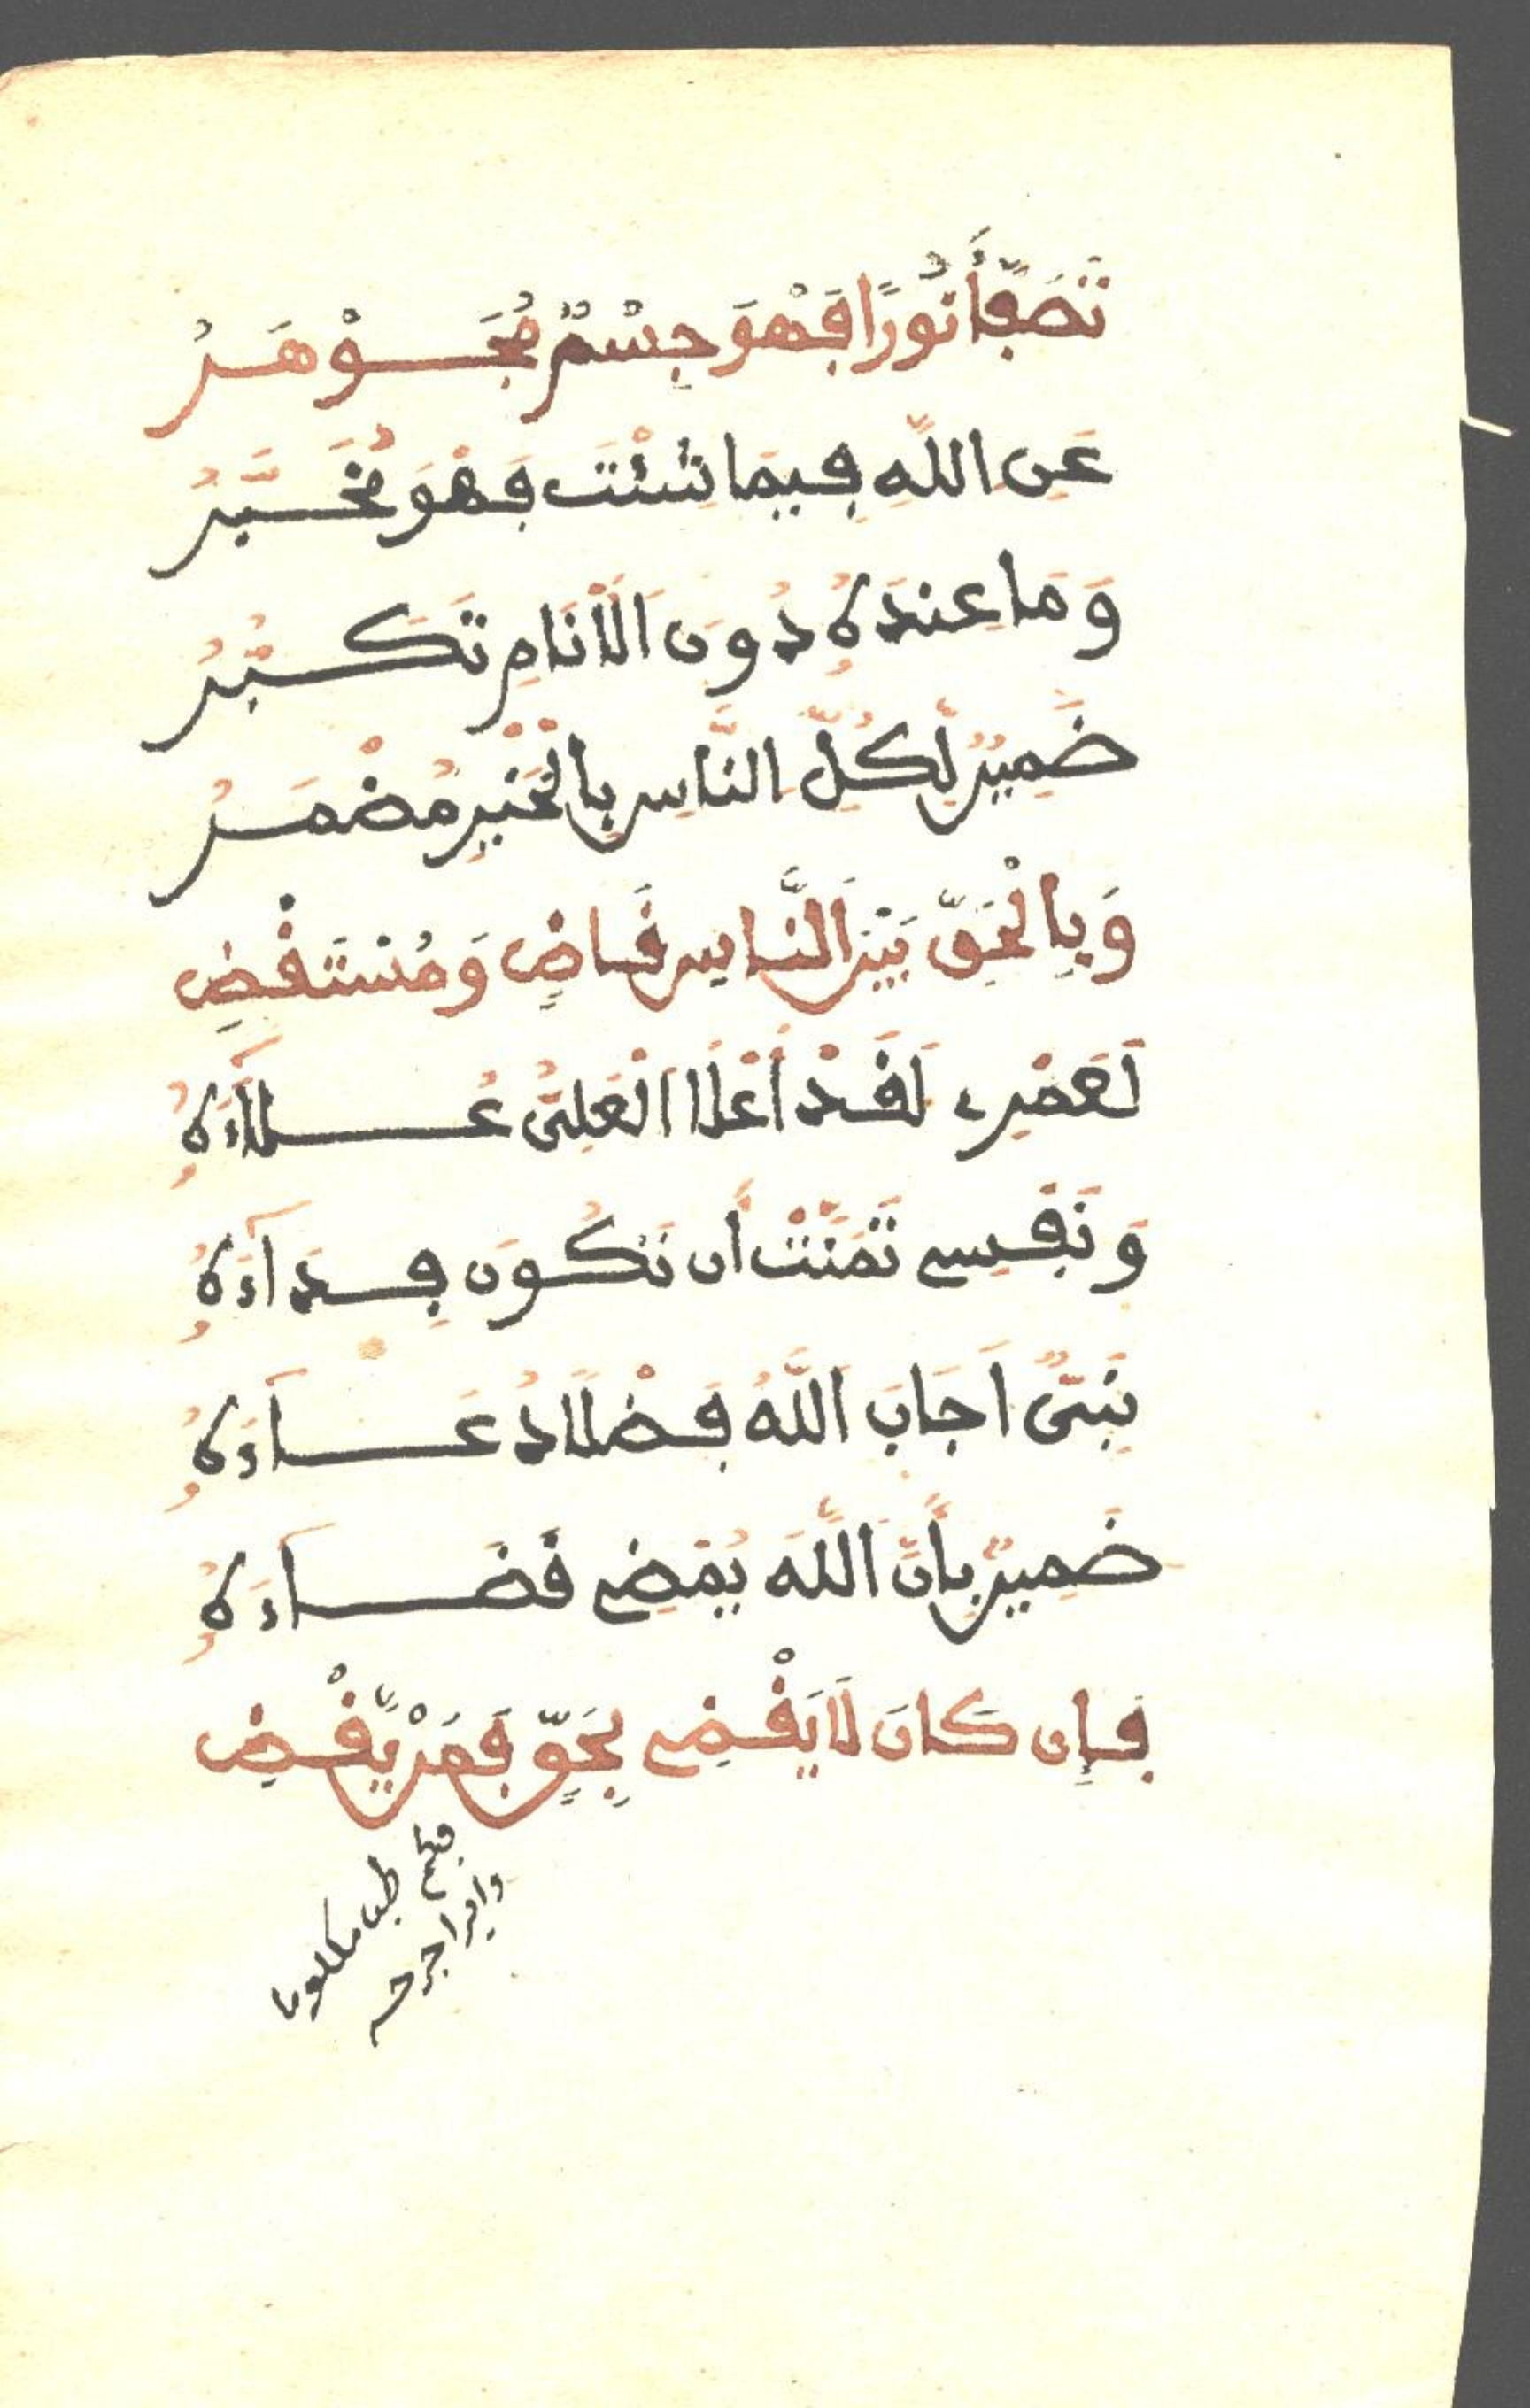 تَصَفَّأَ نُورًا فَهْوَ جِسْمٌ مُجَوْهَرُ
عَنِ اللَّهِ فِيمَا شِئْتَ فَهْوَ مُخَبَّرُ
وَمَا عِندَهُ دُونَ الْأَنَامِ تَكَبُّرُ
ضَمِيرٌ لِّكُلِّ النَّاسِ بِالْخَيْرِ مُضْمَرُ
وَبِالْحَقِّ بَيْنَ النَّاسِ قَاضٍ وَمُسْتَقْضِ
لَعَمْرِي لَقَدْ أَعْلَا الْعَلِيُّ عُلَاءَهُ
وَنَفْسِي تَمَنَّتْ أَن تَكُونَ فِدَآءَهُ
نَبِيٌّ اَجَابَ اللَّهُ فَضْلًا دُعَآءَهُ
ضَمِيرٌ بِأَنَّ اللَّهَ يُمْضِي قَضَآءَهُ
فَإِن كَانَ لَا يَقْضِي بِحَقٍّ فَمَنْ يَّقْضِ
بقلم